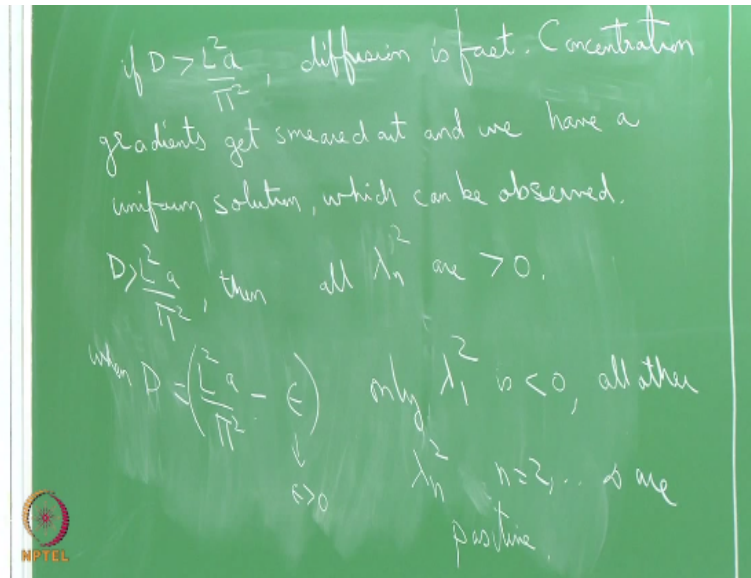 if D > L²a/π², diffusion is fast. Concentration
gradients get smeared out and we have a
uniform solution, which can be observed.
D > L²a/π², then all λₙ² are > 0.
when D = (L²a/π² - ε) only λ₁² is < 0, all other
ε>0 λₙ² n=2,... ∞ are
positive.
NPTEL